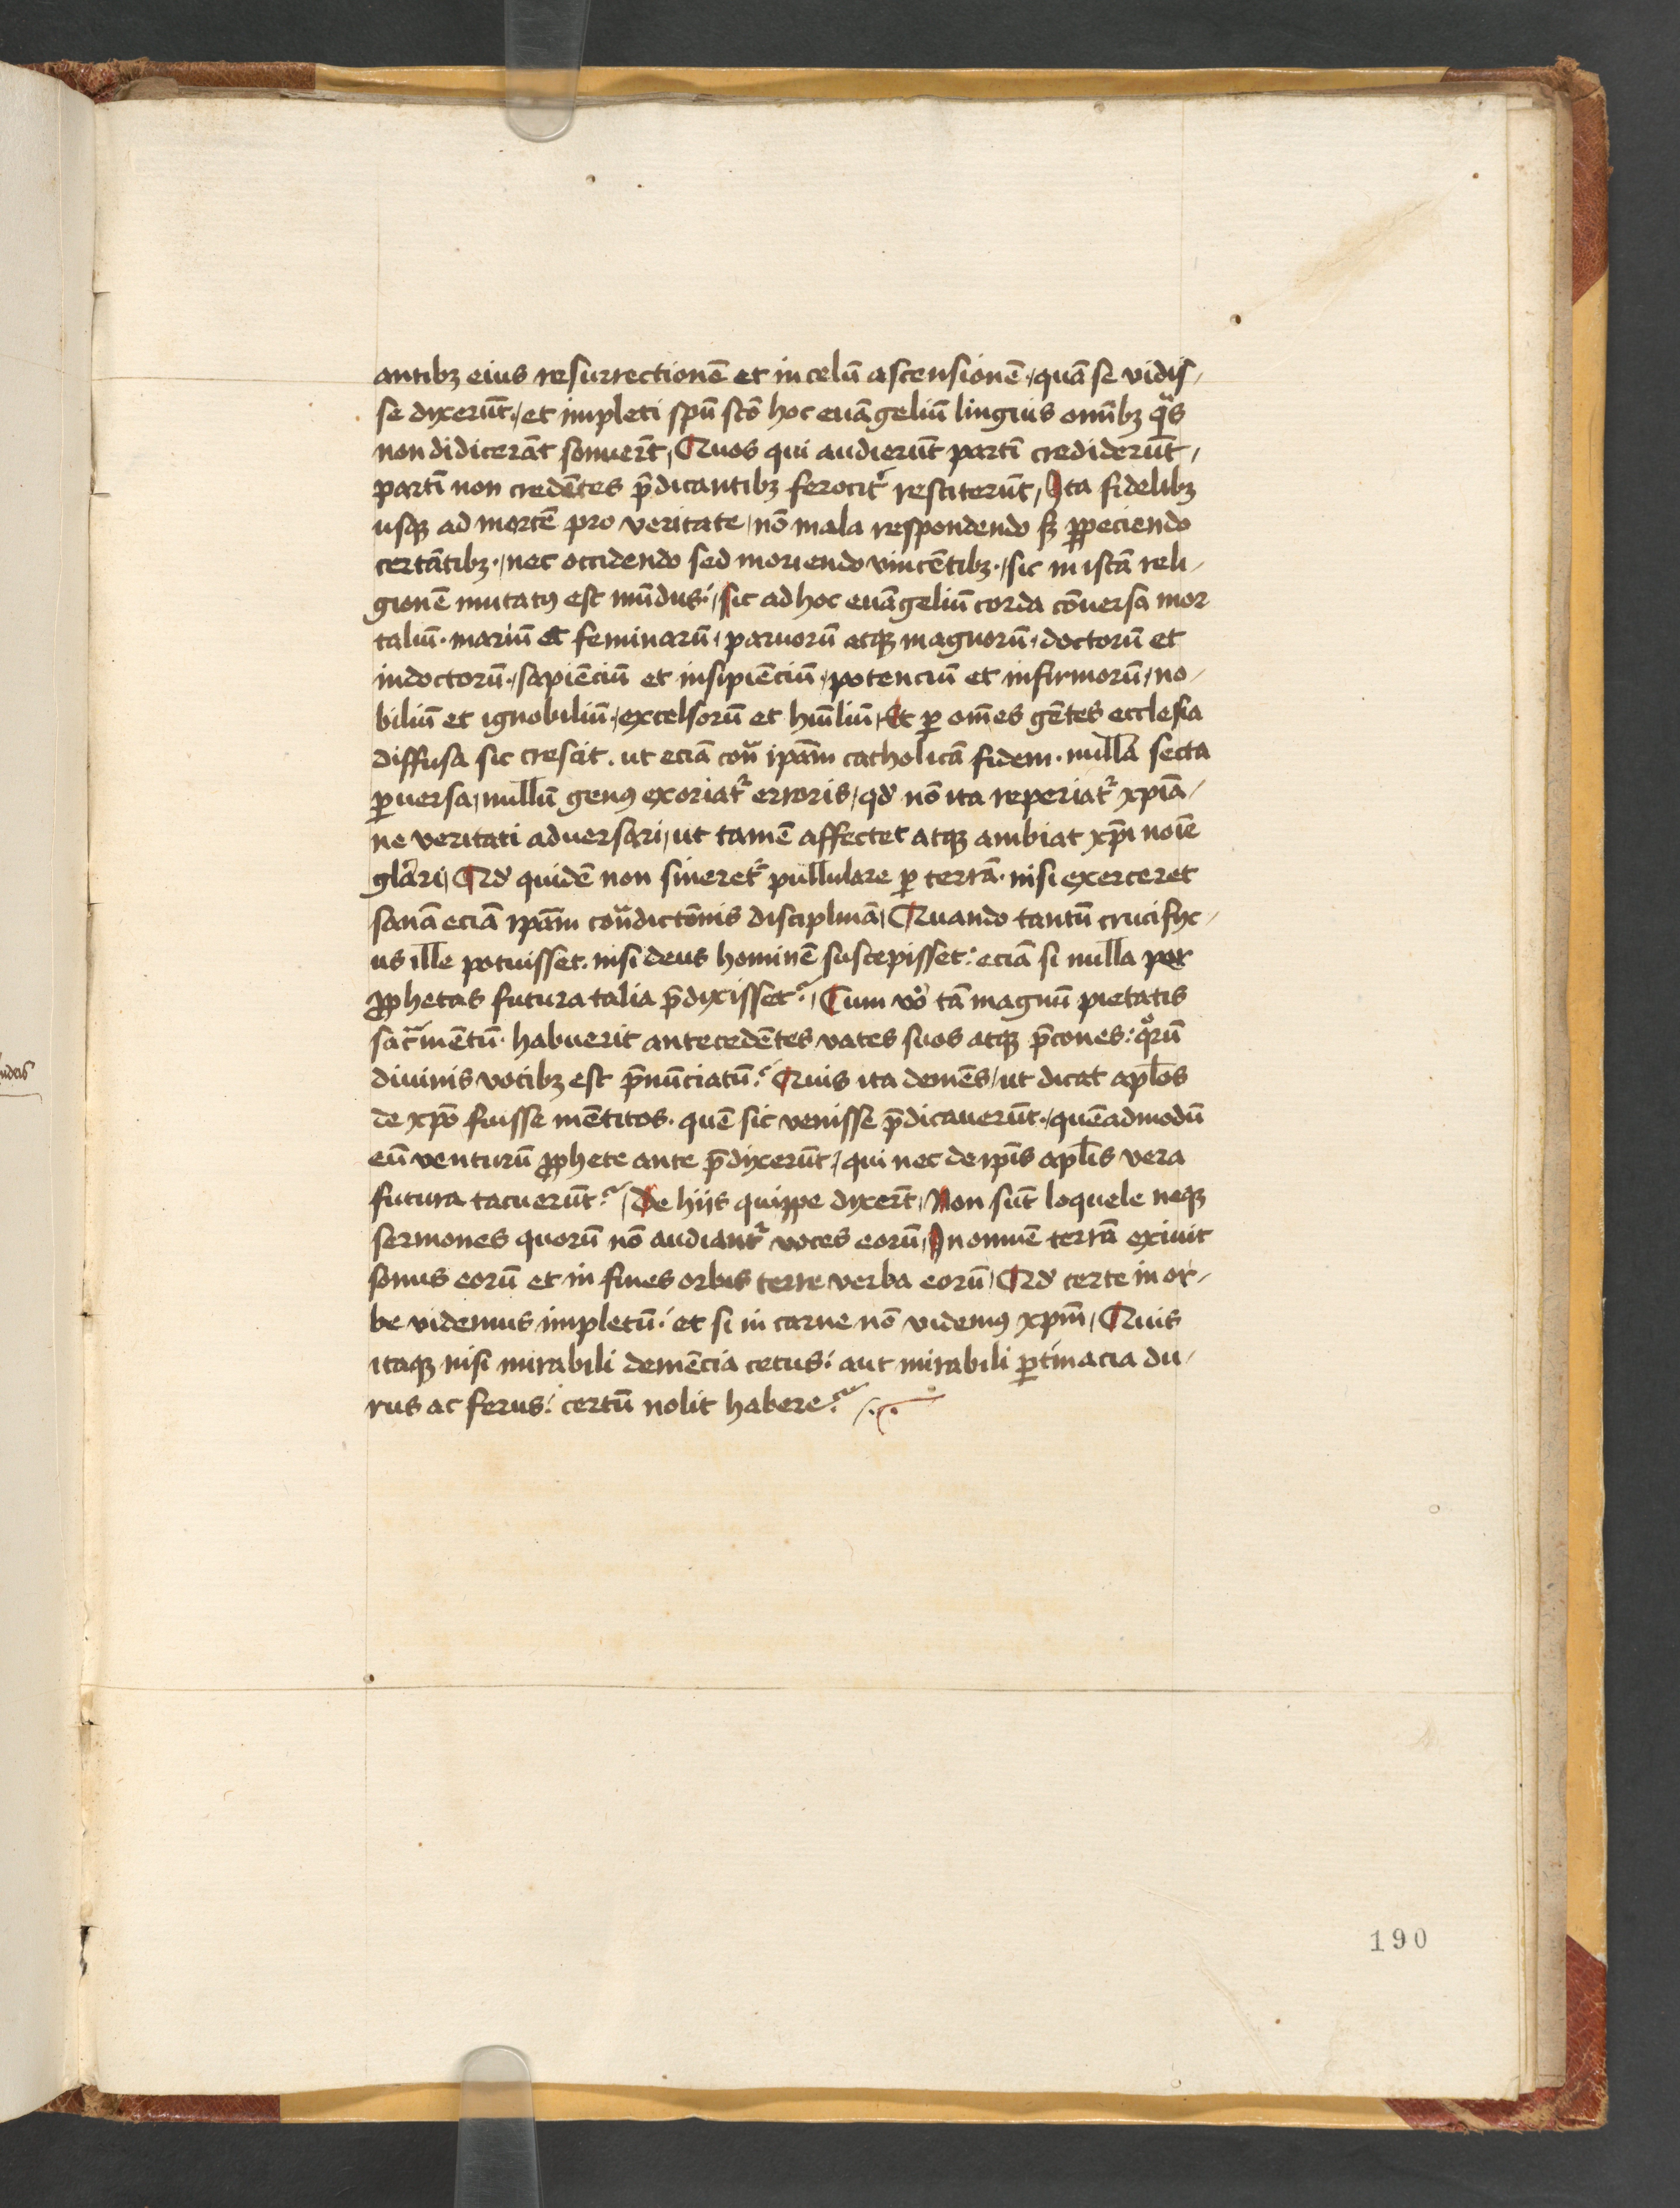 antibꝫ eius resurrectionē et in celū ascensionē ˑ/ quā se vidis/
se dyxerūt ˑ/ et impleti spū scō hoc euāgeliū lingius omībꝫ qᵃs
non didicerāt sonuerūt / Quos qui audierūt partī crediderūt /
partī non credētes p̄dicantibꝫ ferocit᷑ restiterūt / Ita fidelibꝫ
usqꝫ ad mortē pro veritate / nō mala respondendo sꝫ ꝑpeciendo
certātibꝫ ˑ/ nec occidendo sed moriendo vincētibꝫ ˑ/ sic in istā reli/
gionē mutatꝰ est mūdus ˑ/ sic ad hoc euāgeliū corda cōuersa mor
taliū ˑ mariū et feminarū / paruorū atqꝫ magnorū / doctorū et
indoctorū ˑ/ sapiēciū et insipiēciū ˑ/ potenciū et infirmorū / no/
biliū et ignobiliū ˑ/ excelsorū et hūiliū / Et ꝑ om̄es gētes ecclesia
diffusa sic crescit . ut eciā conᵃ ip̄am catholicā fidem ˑ nulla secta
ꝑuersa / nullū genꝰ exoriat᷑ erroris / qd̛ nō ita reperiat᷑ xp̄iā/
ne veritati aduersari / ut tamē affectet atqꝫ ambiat xp̄i noīe
gl̄ari / Qd̛ quidē non sineret᷑ pullulare ꝑ terrā ˑ nisi exerceret
sanā eciā ip̄am conᵃdictōnis disciplinā / Quando tantū crucifyx/
us ille potuisset . nisi deus hominē suscepisset : eciā si nulla per
ꝓphetas futura talia p̄dixisset ? / Cum vo͛ tā magnū pietatis
sacᵃmētū ˑ habuerit antecedētes vates suos atqꝫ p̄cones : qͦrū
diuinis vocibꝫ est p̄nūciatū ? Quis ita demēs / ut dicat apl̄os
de xp̄o fuisse mētitos ˑ quē sic venisse p̄dicauerūt ˑ/ quēadmodū
eū venturū ꝓphete ante p̄dyxerūt / qui nec de ip̄is apl̄is vera
futura tacuerūt ? / De hijs quippe dyxerūt / Non sūt loquele neqꝫ
sermones quorū nō audiant᷑ voces eorū / In omnē terrā exiuit
sonus eorū et in fines orbis terre verba eorū / Qd̛ certe in or/
be videmus impletū : et si in carne nō videmꝰ xp̄m / Quis
itaqꝫ nisi mirabili demēcia cetus : aut mirabili ꝑtinacia du/
rus ac ferus : certū nolit habere ?
190